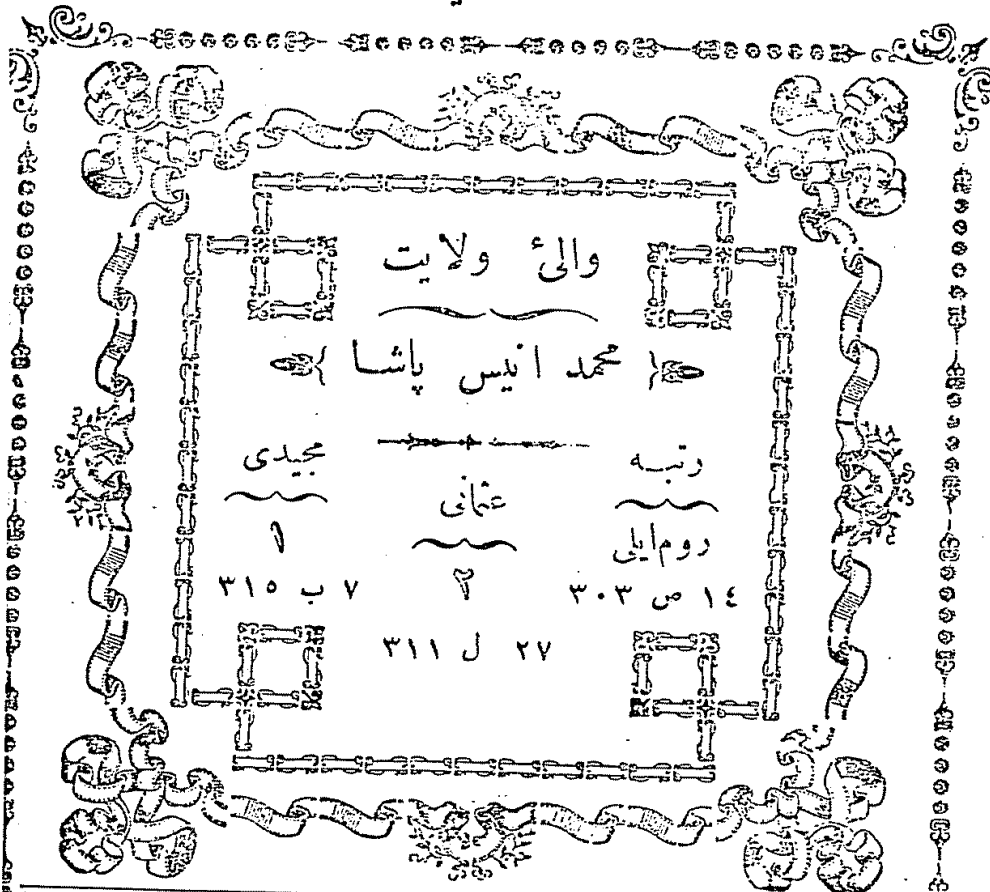 والیٔ ولایت
﴿ محمد انیس پاشا ﴾
رتبه
روم‌ایلی
١٤ ص ٣٠٣
عثمانی
٢
٢٧ ل ٣١١
مجیدی
١
٧ ب ٣١٥